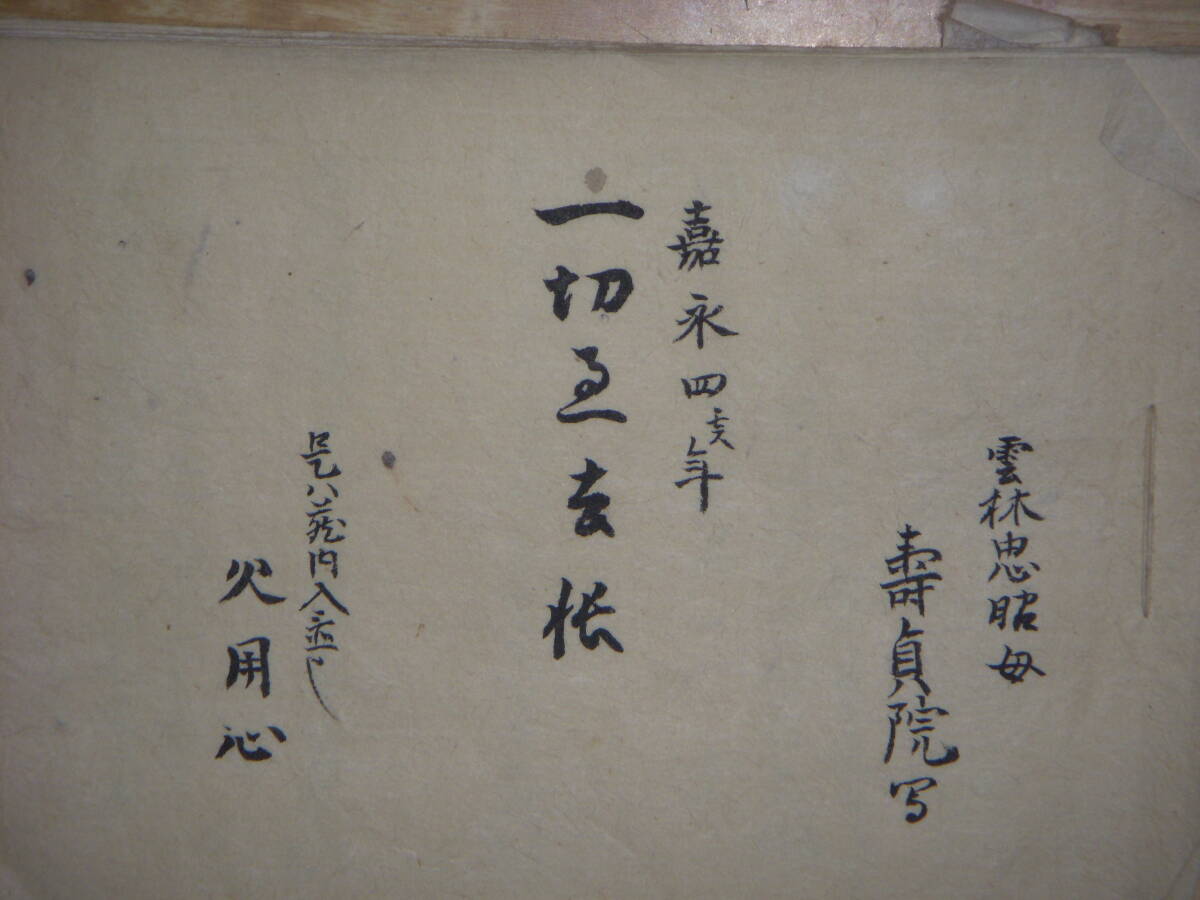 雲林忠昭母
壽貞院写
嘉永四亥年
一切過去帳
是ハ蔵内入置申
火用心